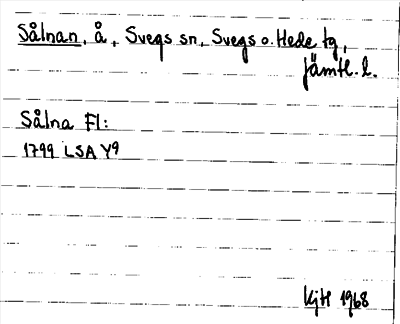 Sålnan, å, Svegs sn, Svegs o. Hede tg,
Jämtl. l.
Sålna Fl:
1799 LSA Y9
KjH 1968